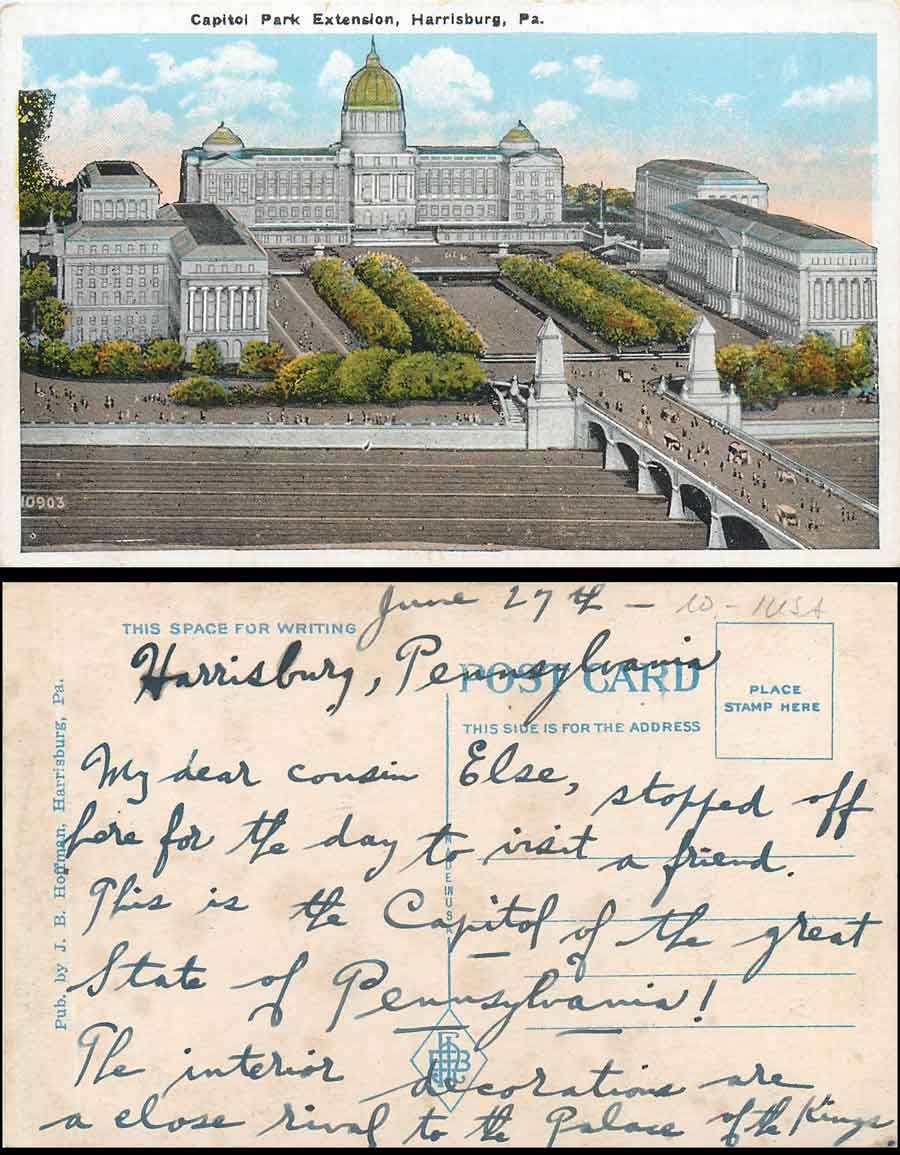 Capitol Park Extension, Harrisburg, Pa.
10903
June 27th - 10,- USA
THIS SPACE FOR WRITING
Harrisburg, Pennsylvania
POST CARD
THIS SIDE IS FOR THE ADDRESS
PLACE
STAMP HERE
Pub. by J. B. Hoffman, Harrisburg, Pa.
MADE IN U.S.A.
My dear cousin Else, stopped off
here for the day to visit a friend.
This is the Capitol of the great
State of Pennsylvania!
The interior decorations are
a close rival to the Palace of the Kings.